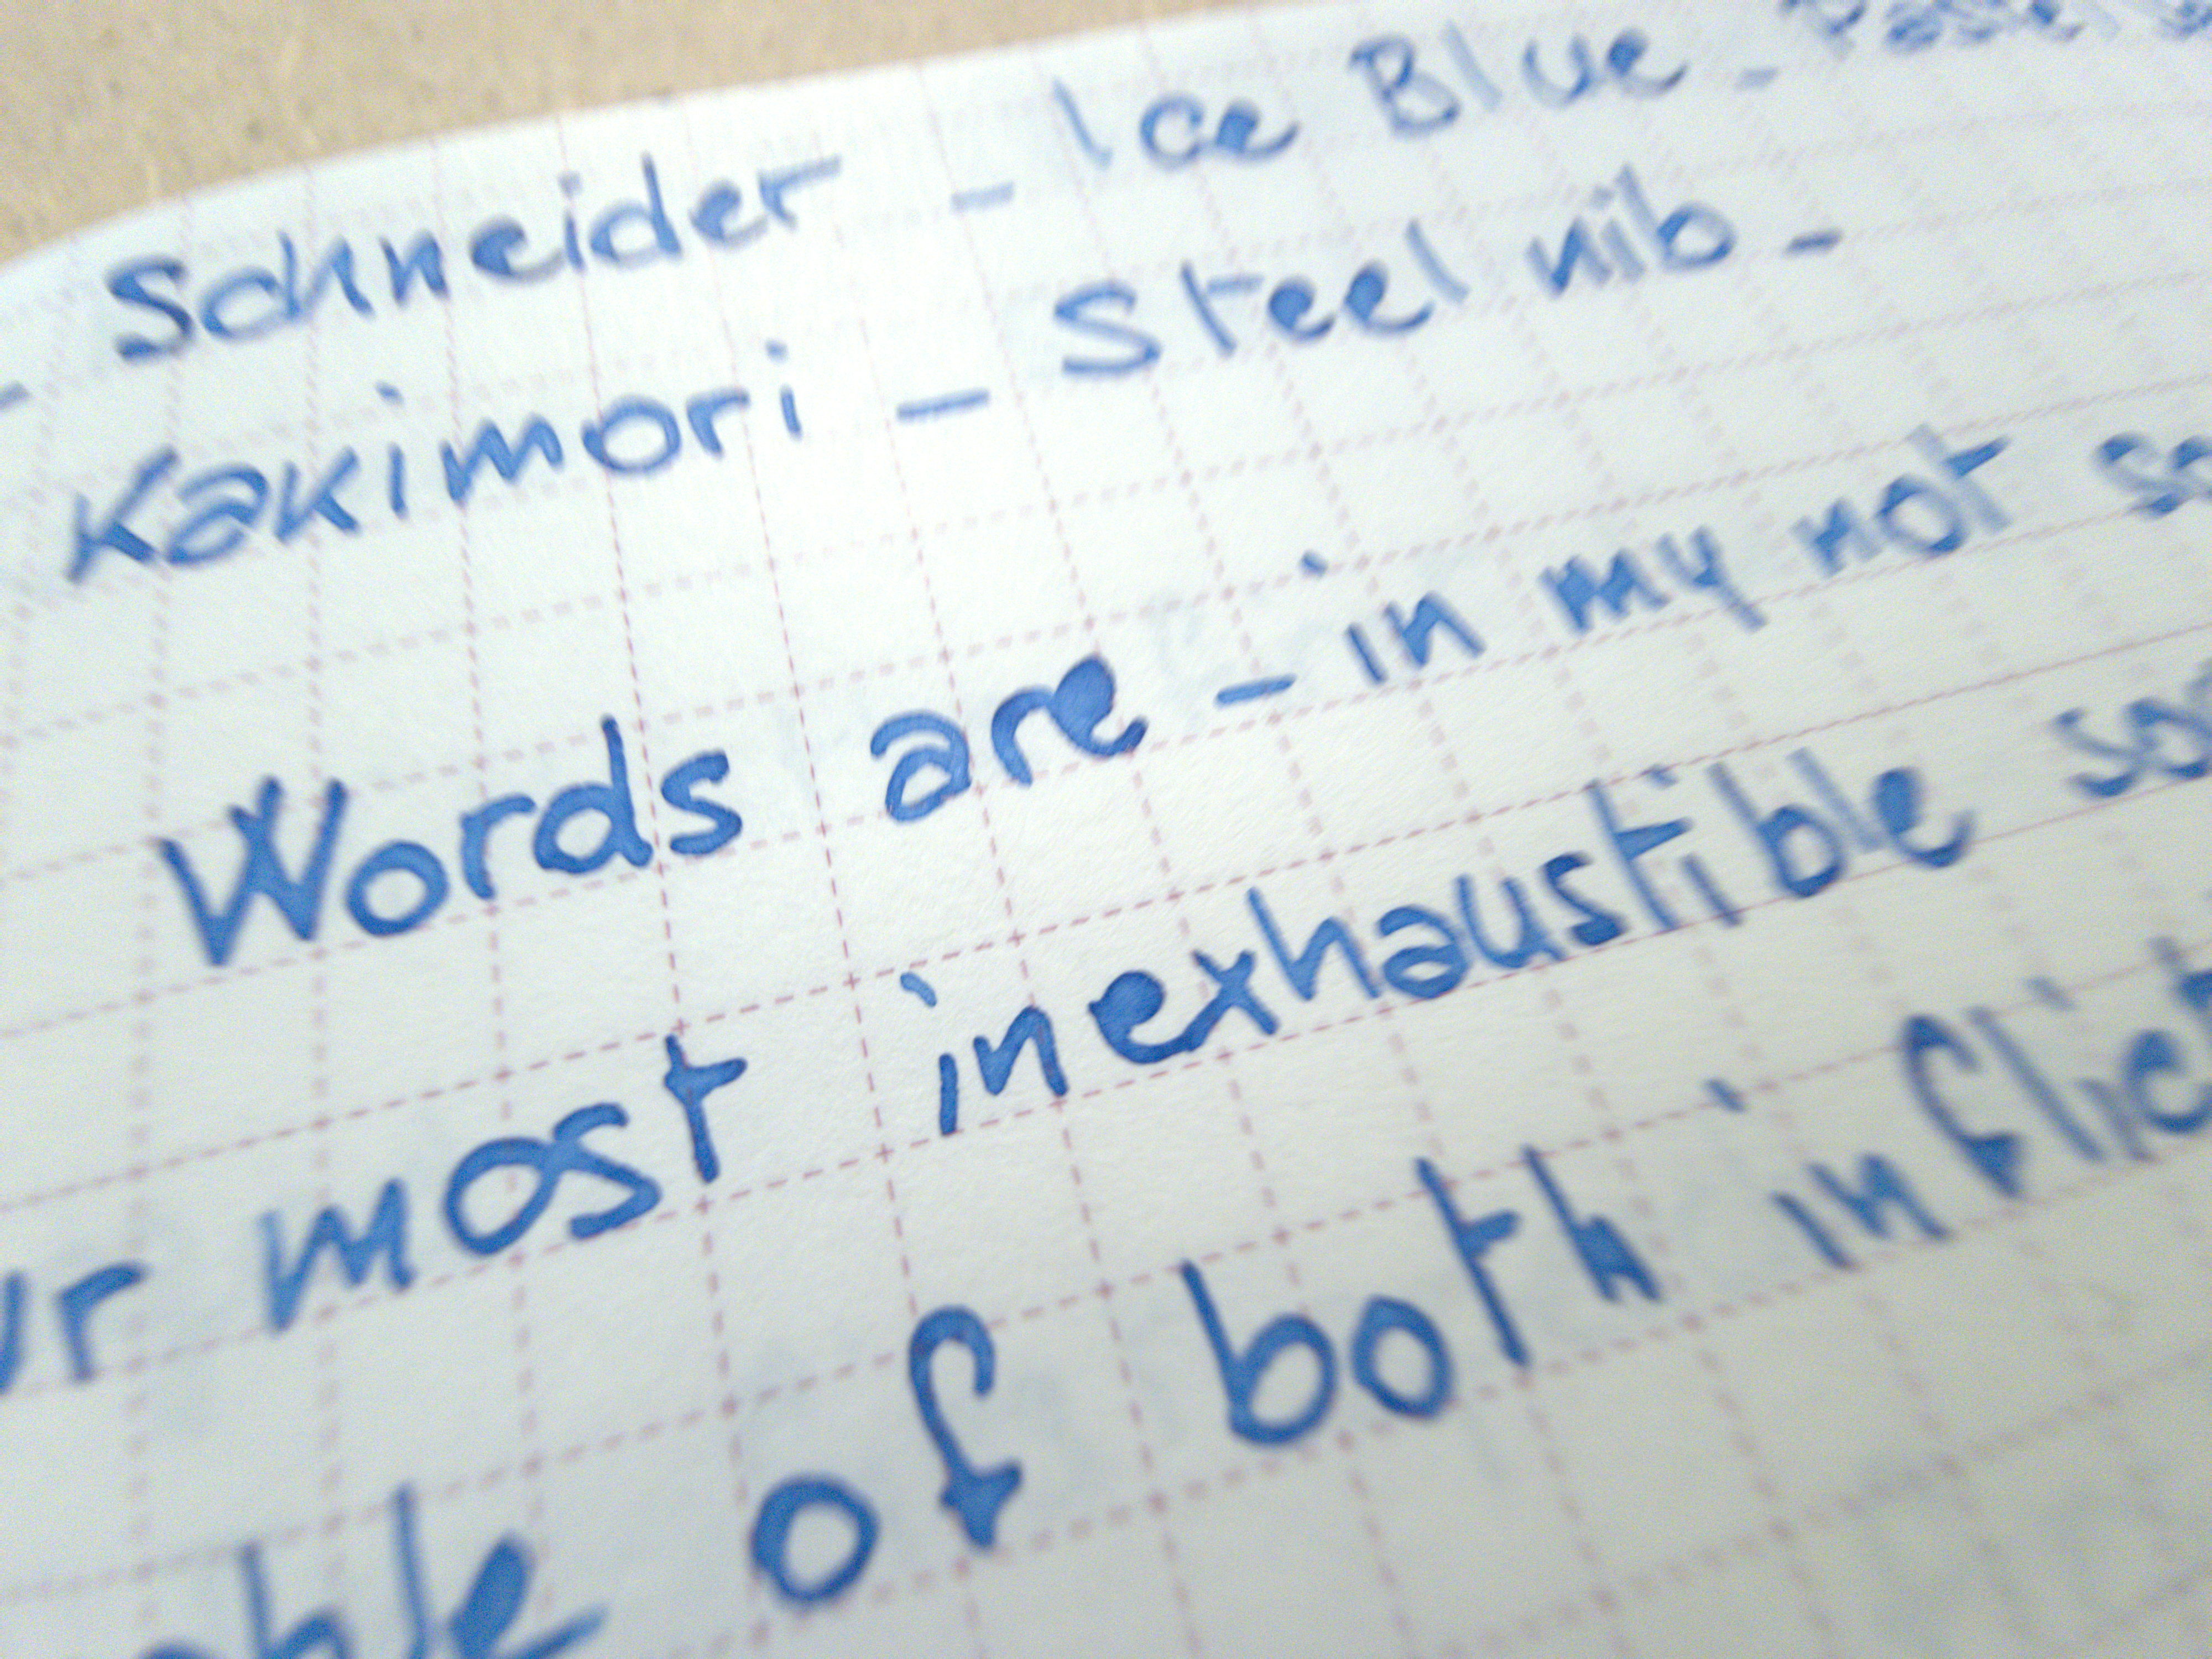 - Schneider - Ice Blue -
Kakimori - Steel nib -
Words are - in my not
most inexhaustible
of both